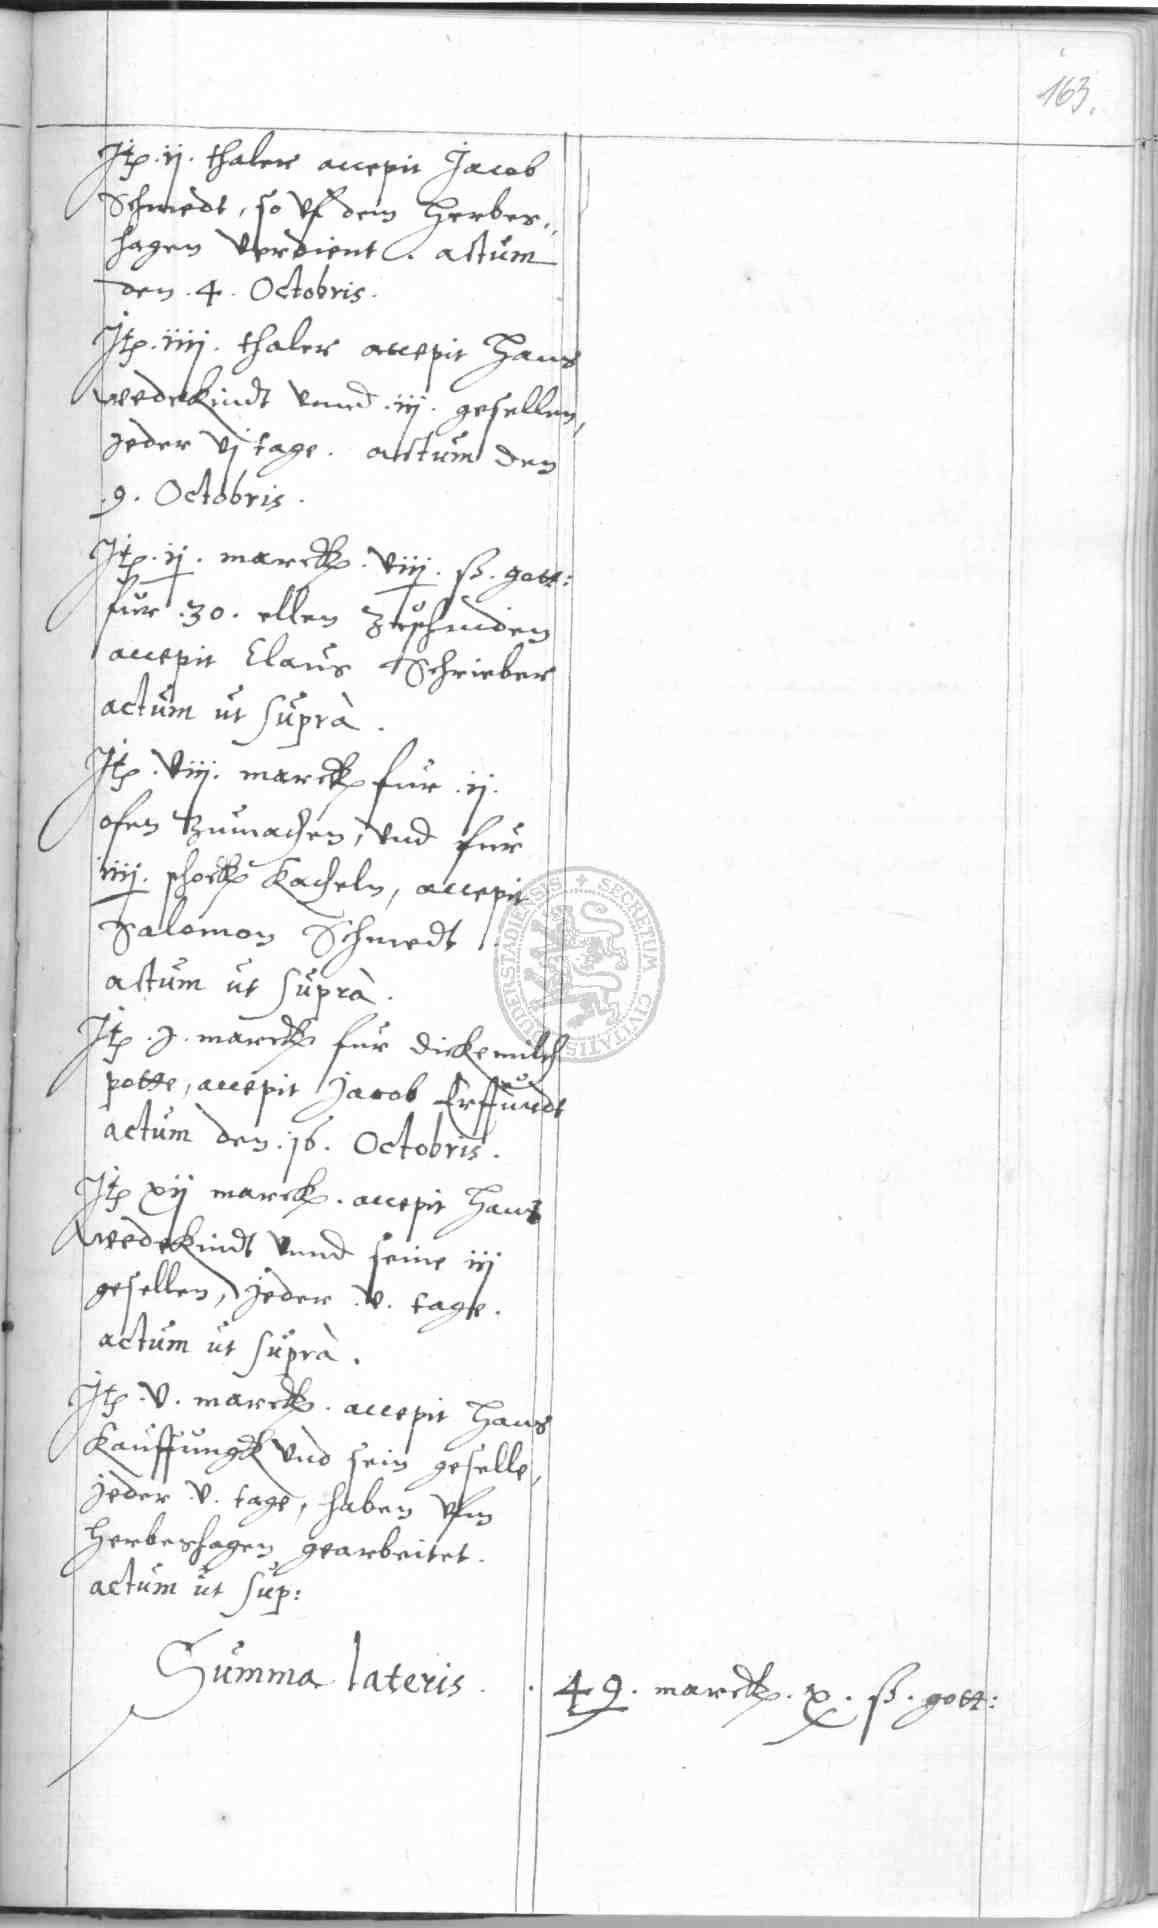 163.
Itp. ij. thaler accepit Jacob
Schmedt, so vf dem Herbes„
hagen verdient. actum
den .4. Octobris.
Itp. iiij. thaler accepit Hans
wedekindt vnnd .iij. gesellen,
jeder vj tage. actum den
.9. Octobris.
Itp. ij. marck. viij. ß. gott:
fur .30. ellen
accepit Claus Schrieber
actum ut suprà.
Itp. viij. marck fur .ij.
ofen zumachen, vnd fur
iiij. schock kacheln, accepit
Salomon Schmedt.
actum ut suprà.
Itp. j. marck fur dickemilch
potte, accepit Jacob Erffurdt
actum den .16. Octobris.
Itp xij marck. accepit Hans
wedekindt vnnd seine iij
gesellen, jeder .v. tage.
actum ut suprà.
Itp. v. marck. accepit Hans
Kauffungk vnd sein geselle,
jeder .v. tage, haben vfm
Herbeshagen gearbeitet.
actum ut sup:
Summa lateris . . 49. marck. x. ß. gott:
SECRETUM CIVITATIS DUDERSTADIENSIS